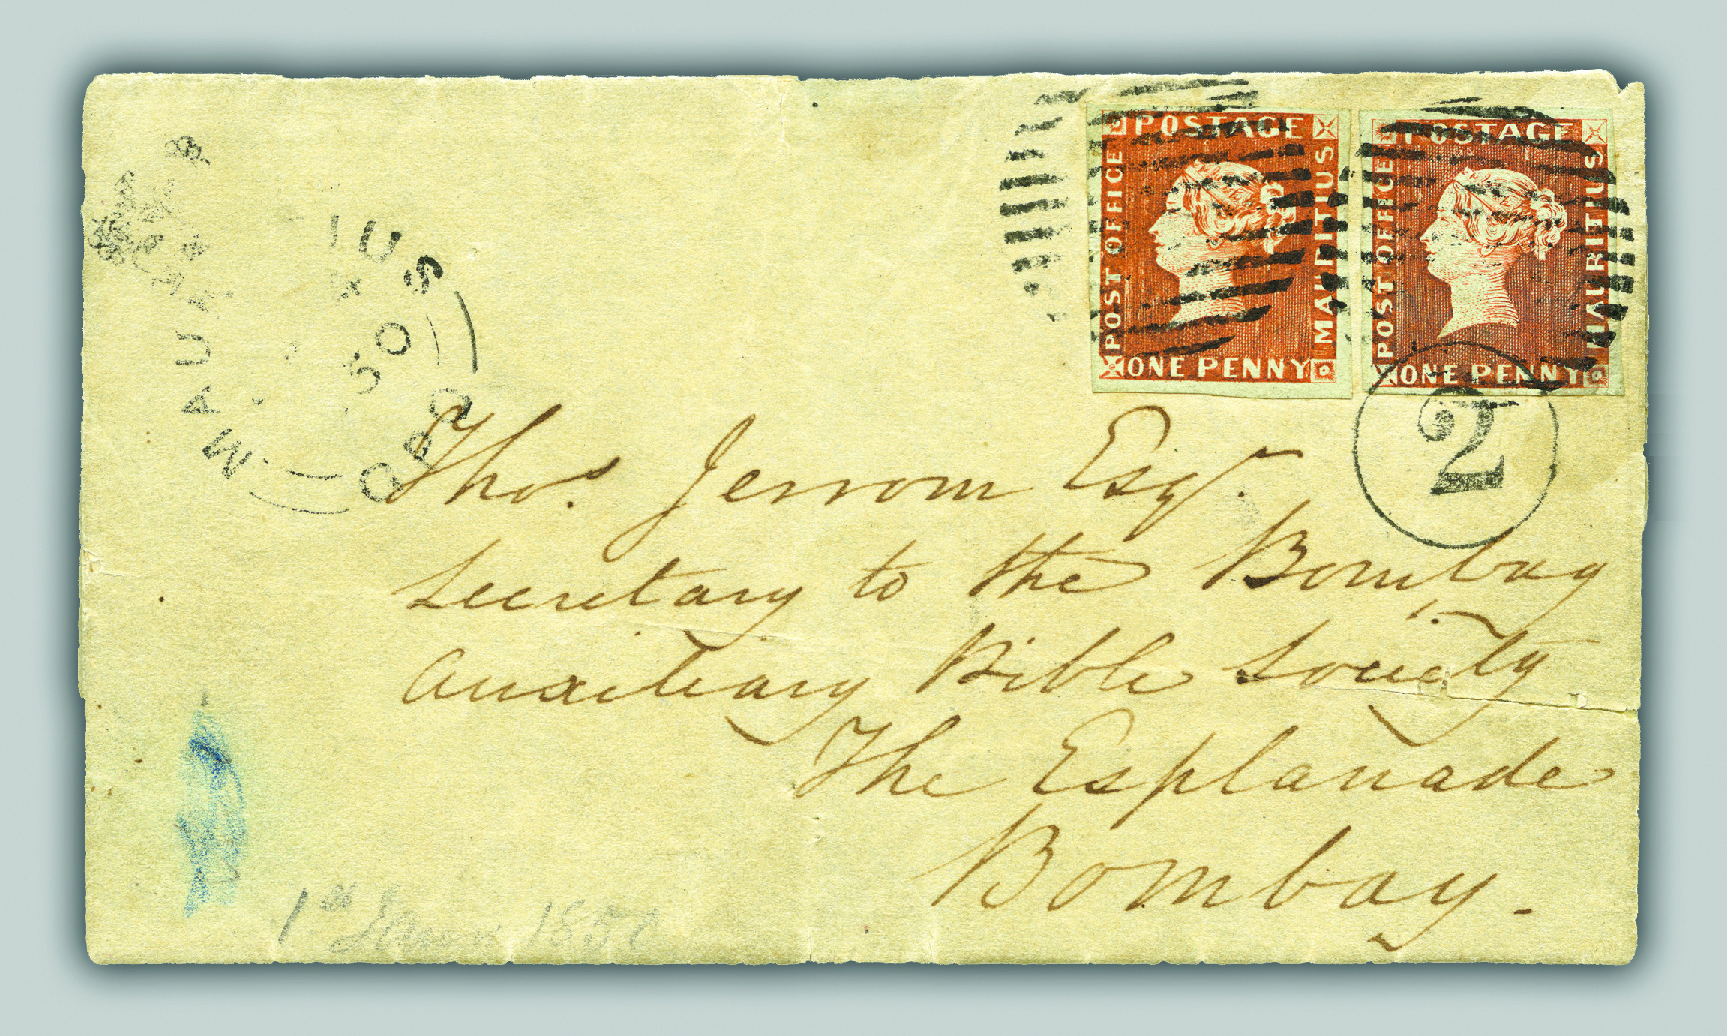 POSTAGE
POST OFFICE
MAURITIUS
ONE PENNY
POSTAGE
POST OFFICE
MAURITIUS
ONE PENNY
MAU IUS
50
2
Thos. Jerrom Esqr.
Secretary to the Bombay
Auxiliary Bible Society
The Esplanade
Bombay.
1850